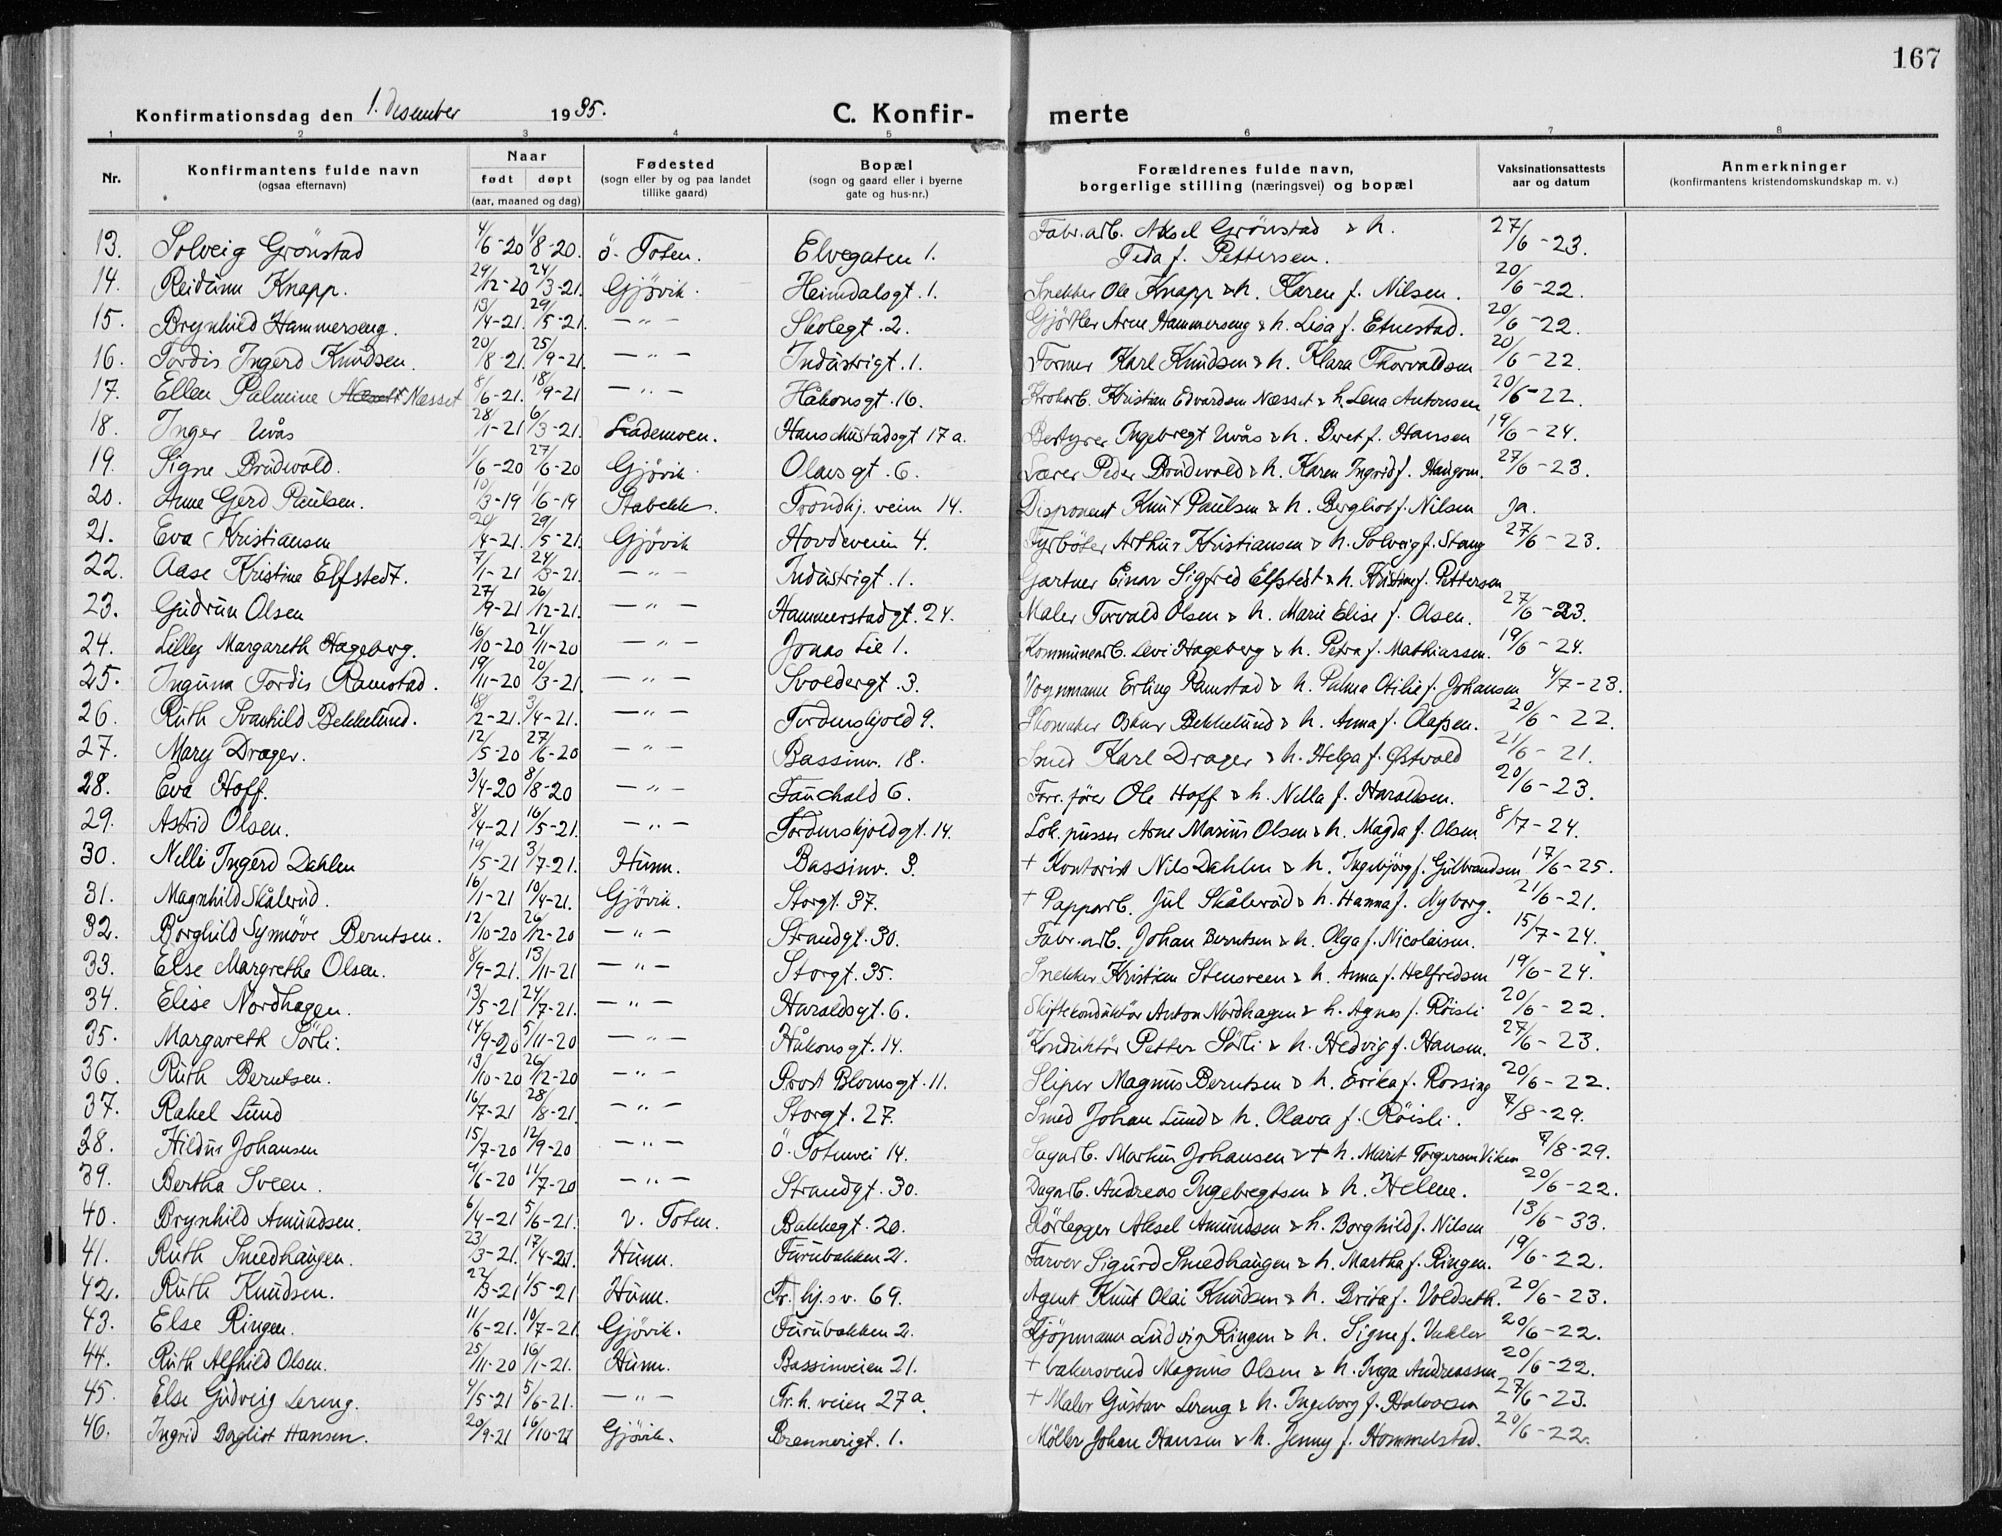 167
Konfirmationsdag den 1. desember 1935. C. Konfir- merte
1 2 3 4 5 6 7 8
Nr. Konfirmantens fulde navn (ogsaa efternavn) Naar født døpt (aar, maaned og dag) Fødested (sogn eller by og paa landet tillike gaard) Bopæl (sogn og gaard eller i byerne gate og hus-nr.) Forældrenes fulde navn, borgerlige stilling (næringsvei) og bopæl Vaksinationsattests aar og datum Anmerkninger (konfirmantens kristendomskundskap m. v.)
13. Solveig Grönstad 4/6-20 1/8-20. ö. Toten. Elvegaten 1. Fabr.arb. Aksel Grönstad & h. Teda f. Pettersen. 27/6-23.
14. Reidunn Knapp. 29/12-20 24/3-21. Gjövik. Heimdalsgt. 1. Snekker Ole Knapp & h. Karen f. Nilsen. 20/6-22.
15. Brynhild Hammerseng. 13/4-21. 29/5-21. — " — Skolegt. 2. Gjörtler Arne Hammerseng & h. Lisa f. Etnestad. 20/6-22.
16. Tordis Ingerd Knudsen. 20/8-21. 25/9-21. — " — Industrigt. 1. Former Karl Knudsen & h. Klara Thorvaldsen 20/6-22.
17. Ellen Palmine Næsset 8/6-21. 18/9-21 — " — Håkonsgt. 16. Krokarb. Kristian Edvardsen Næsset & h. Lena Antonsen 20/6-22.
18. Inger Uvås 28/1-21 6/3-21. Lademoen. Hans Mustadsgt 17 a. Bestyrer Ingebregt Uvås & h. Beret f. Hansen 19/6-24.
19. Signe Brudevold. 1/6-20 27/6-20 Gjövik. Olavsgt. 6. Lærer Peder Brudevold & h. Karen Ingrid f. Haugom. 27/6-23.
20. Anne Gerd Paulsen. 10/3-19 1/6-19 Stabekk. Trondhj. veien 14. Disponent Knut Paulsen & h. Bergliot f. Nilsen Ja.
21. Eva Kristiansen 20/4-21. 29/5-21. Gjövik Hovdeveien 4. Fyrböter Arthur Kristiansen & h. Solveig f. Stang 27/6-23.
22. Aase Kristine Elfstedt. 7/1-21 24/3-21. — " — Industrigt. 1. Gartner Einar Sigfred Elfstedt & h. Kristine f. Pettersen
23. Gudrun Olsen 27/9-21 26/12-21. — " — Hammerstadgt. 24. Maler Torvald Olsen & h. Marie Elise f. Olsen. 27/6-23.
24. Lilly Margareth Hageberg. 16/10-20 21/11-20 — " — Jonas Lie 1. Kommunearb. Levi Hageberg & h. Petra f. Mathiassen. 19/6-24.
25. Ingunn Tordis Ramstad. 19/11-20 20/3-21. — " — Svoldergt. 3. Vognmann Erling Ramstad & h. Palma Otilie f. Johansen 4/7-23.
26. Ruth Svanhild Bekkelund. 18/2-21. 3/4-21. — " — Tordenskjold 9. Skomaker Oskar Bekkelund & h. Anna f. Olafsen. 20/6-22.
27. Mary Drager. 12/5-20 27/6-20 — " — Bassinv. 18. Smed Karl Drager & h. Helga f. Østvold 21/6-21.
28. Eva Hoff. 3/4-20 8/8-20 — " — Fauchald 6. Forr. förer Ole Hoff & h. Nilla f. Haraldsen. 20/6-23.
29. Astrid Olsen. 8/4-21 16/5-21. — " — Tordenskjoldgt. 14. Lok. pusser Arne Marius Olsen & h. Magda f. Olsen 8/7-24.
30. Nelli Ingerd Dahlen 19/5-21 3/7-21. Hunn. Bassinv. 3. + Kontorist Nils Dahlen & h. Ingebjörg f. Gulbrandsen 17/6-25.
31. Magnhild Skålerud. 16/1-21 10/4-21. Gjövik. Storgt. 37. + Papparb. Jul Skålerud & h. Hanna f. Nyborg. 21/6-21.
32. Borghild Synnöve Berntsen. 12/10-20 26/12-20 — " — Strandgt. 30. Fabr.arb. Johan Berntsen & h. Olga f. Nicolaisen. 15/7-24.
33. Else Margrethe Olsen. 8/9-21. 13/11-21 — " — Storgt. 35. Snekker Kristian Stensveen & h. Anna f. Helfredsen 19/6-24.
34. Elise Nordhagen. 13/5-21 24/7-21. — " — Haraldsgt. 6. Skiftekonduktör Anton Nordhagen & h. Agnes f. Röisli 20/6-22.
35. Margareth Sörli. 14/9-20 5/11-20 — " — Håkonsgt. 14. Konduktör Petter Sörli & h. Hedvig f. Hansen. 27/6-23.
36. Ruth Berntsen. 13/10-20 26/12-20 — " — Prost Blomsgt. 11. Sliper Magnus Berntsen & h. Erika f. Rossing 20/6-22.
37. Rakel Lund 16/7-21 28/8-21. — " — Storgt. 27. Smed Johan Lund & h. Olava f. Röisli. 7/8-29.
38. Hildur Johansen 15/7-20 12/9-20 — " — Ö. Totenvei 14. Sagarb. Martin Johansen & + h. Marit Torgersen Viken 7/8-29.
39. Bertha Sveen. 9/6-20 11/7-20 — " — Strandgt. 30. Dagarb. Andreas Ingebregtsen & h. Helene. 20/6-22.
40. Brynhild Amundsen. 6/4-21 5/6-21. v. Toten. Bakkegt. 20. Rörlegger Aksel Amundsen & h. Borghild f. Nilsen 13/6-33.
41. Ruth Smedhaugen. 23/3-21. 17/4-21 Hunn. Furubakken 21. Farver Sigurd Smedhaugen & h. Martha f. Ringen. 19/6-22.
42. Ruth Knudsen. 22/3-21 1/5-21 Hunn. Tr. hj.s v. 69. Agent Knut Olai Knudsen & h. Brita f. Voldseth. 20/6-23.
43. Else Ringen. 11/6-21. 10/7-21 Gjövik. Furubakken 2. Kjöpmann Ludvig Ringen & h. Signe f. Vakler 20/6-22.
44. Ruth Alfhild Olsen. 25/11-20 16/1-21. Hunn. Bassinveien 21. + bakersvend Magnus Olsen & h. Inga Andreassen 20/6-22.
45. Else Gudveig Lereng. 4/5-21 5/6-21. — " Tr. h. veien 27a. + Maler Gustav Lereng & h. Ingeborg f. Halvorsen 27/6-23.
46. Ingrid Bergliot Hansen. 20/9-21 16/10-21 Gjövik. Brennerigt. 1. Möller Johan Hansen & h. Jenny f. Hommelstad. 20/6-22.